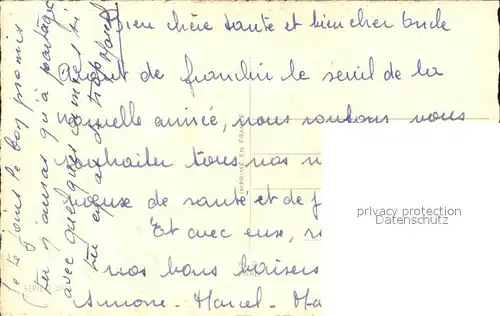 Bien chère tante et bien cher oncle
Avant de franchir le seuil de la
nouvelle année, nous voulons vous
souhaiter tous nos
de santé et de
Et avec eux,
nos bons baisers
Simone - Marcel -
Je te joins le bon promis
(tu n'auras qu'à partager
avec quelques comères si
tu en as de trop
Marcel
IMPRIMÉ EN FRANCE
privacy protection
Datenschutz